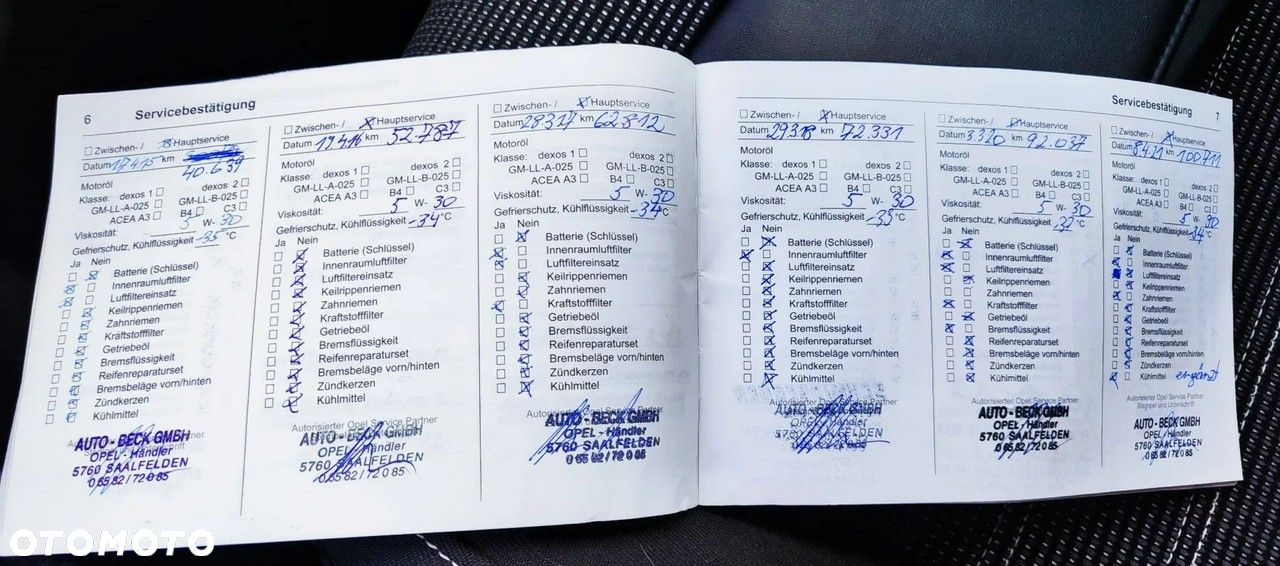 6
Servicebestätigung
Zwischen- / Hauptservice
Datum 17.4.15 km
40.639
Motoröl
Klasse: dexos 1 dexos 2
GM-LL-A-025 GM-LL-B-025
ACEA A3 B4 C3
Viskosität: 5 W- 30
Gefrierschutz, Kühlflüssigkeit -35 °C
Ja Nein
Batterie (Schlüssel)
Innenraumluftfilter
Luftfiltereinsatz
Keilrippenriemen
Zahnriemen
Kraftstofffilter
Getriebeöl
Bremsflüssigkeit
Reifenreparaturset
Bremsbeläge vorn/hinten
Zündkerzen
Kühlmittel
AUTO - BECK GMBH
OPEL - Händler
5760 SAALFELDEN
0 65 82 / 72 0 85
Zwischen- / Hauptservice
Datum 19.4.16 km 52.787
Motoröl
Klasse: dexos 1 dexos 2
GM-LL-A-025 GM-LL-B-025
ACEA A3 B4 C3
Viskosität: 5 W- 30
Gefrierschutz, Kühlflüssigkeit -34 °C
Ja Nein
Batterie (Schlüssel)
Innenraumluftfilter
Luftfiltereinsatz
Keilrippenriemen
Zahnriemen
Kraftstofffilter
Getriebeöl
Bremsflüssigkeit
Reifenreparaturset
Bremsbeläge vorn/hinten
Zündkerzen
Kühlmittel
Autorisierter Opel Service Partner
AUTO - BECK GMBH
OPEL - Händler
5760 SAALFELDEN
0 65 82 / 72 0 85
Zwischen- / Hauptservice
Datum 28.3.17 km 62.812
Motoröl
Klasse: dexos 1 dexos 2
GM-LL-A-025 GM-LL-B-025
ACEA A3 B4 C3
Viskosität: 5 W- 30
Gefrierschutz, Kühlflüssigkeit -34 °C
Ja Nein
Batterie (Schlüssel)
Innenraumluftfilter
Luftfiltereinsatz
Keilrippenriemen
Zahnriemen
Kraftstofffilter
Getriebeöl
Bremsflüssigkeit
Reifenreparaturset
Bremsbeläge vorn/hinten
Zündkerzen
Kühlmittel
AUTO - BECK GMBH
OPEL - Händler
5760 SAALFELDEN
0 65 82 / 72 0 85
Servicebestätigung
7
Zwischen- / Hauptservice
Datum 29.3.18 km 72.331
Motoröl
Klasse: dexos 1 dexos 2
GM-LL-A-025 GM-LL-B-025
ACEA A3 B4 C3
Viskosität: 5 W- 30
Gefrierschutz, Kühlflüssigkeit -35 °C
Ja Nein
Batterie (Schlüssel)
Innenraumluftfilter
Luftfiltereinsatz
Keilrippenriemen
Zahnriemen
Kraftstofffilter
Getriebeöl
Bremsflüssigkeit
Reifenreparaturset
Bremsbeläge vorn/hinten
Zündkerzen
Kühlmittel
AUTO - BECK GMBH
OPEL - Händler
5760 SAALFELDEN
0 65 82 / 72 0 85
Zwischen- / Hauptservice
Datum 3.3.20 km 92.037
Motoröl
Klasse: dexos 1 dexos 2
GM-LL-A-025 GM-LL-B-025
ACEA A3 B4 C3
Viskosität: 5 W- 30
Gefrierschutz, Kühlflüssigkeit -32 °C
Ja Nein
Batterie (Schlüssel)
Innenraumluftfilter
Luftfiltereinsatz
Keilrippenriemen
Zahnriemen
Kraftstofffilter
Getriebeöl
Bremsflüssigkeit
Reifenreparaturset
Bremsbeläge vorn/hinten
Zündkerzen
Kühlmittel
Autorisierter Opel Service Partner
AUTO - BECK GMBH
OPEL - Händler
5760 SAALFELDEN
0 65 82 / 72 0 85
Zwischen- / Hauptservice
Datum 8.4.21 km 100.711
Motoröl
Klasse: dexos 1 dexos 2
GM-LL-A-025 GM-LL-B-025
ACEA A3 B4 C3
Viskosität: 5 W- 30
Gefrierschutz, Kühlflüssigkeit -34 °C
Ja Nein
Batterie (Schlüssel)
Innenraumluftfilter
Luftfiltereinsatz
Keilrippenriemen
Zahnriemen
Kraftstofffilter
Getriebeöl
Bremsflüssigkeit
Reifenreparaturset
Bremsbeläge vorn/hinten
Zündkerzen
Kühlmittel ergänzt
Autorisierter Opel Service Partner
Stempel und Unterschrift
AUTO - BECK GMBH
OPEL - Händler
5760 SAALFELDEN
0 65 82 / 72 0 85
OTOMOTO